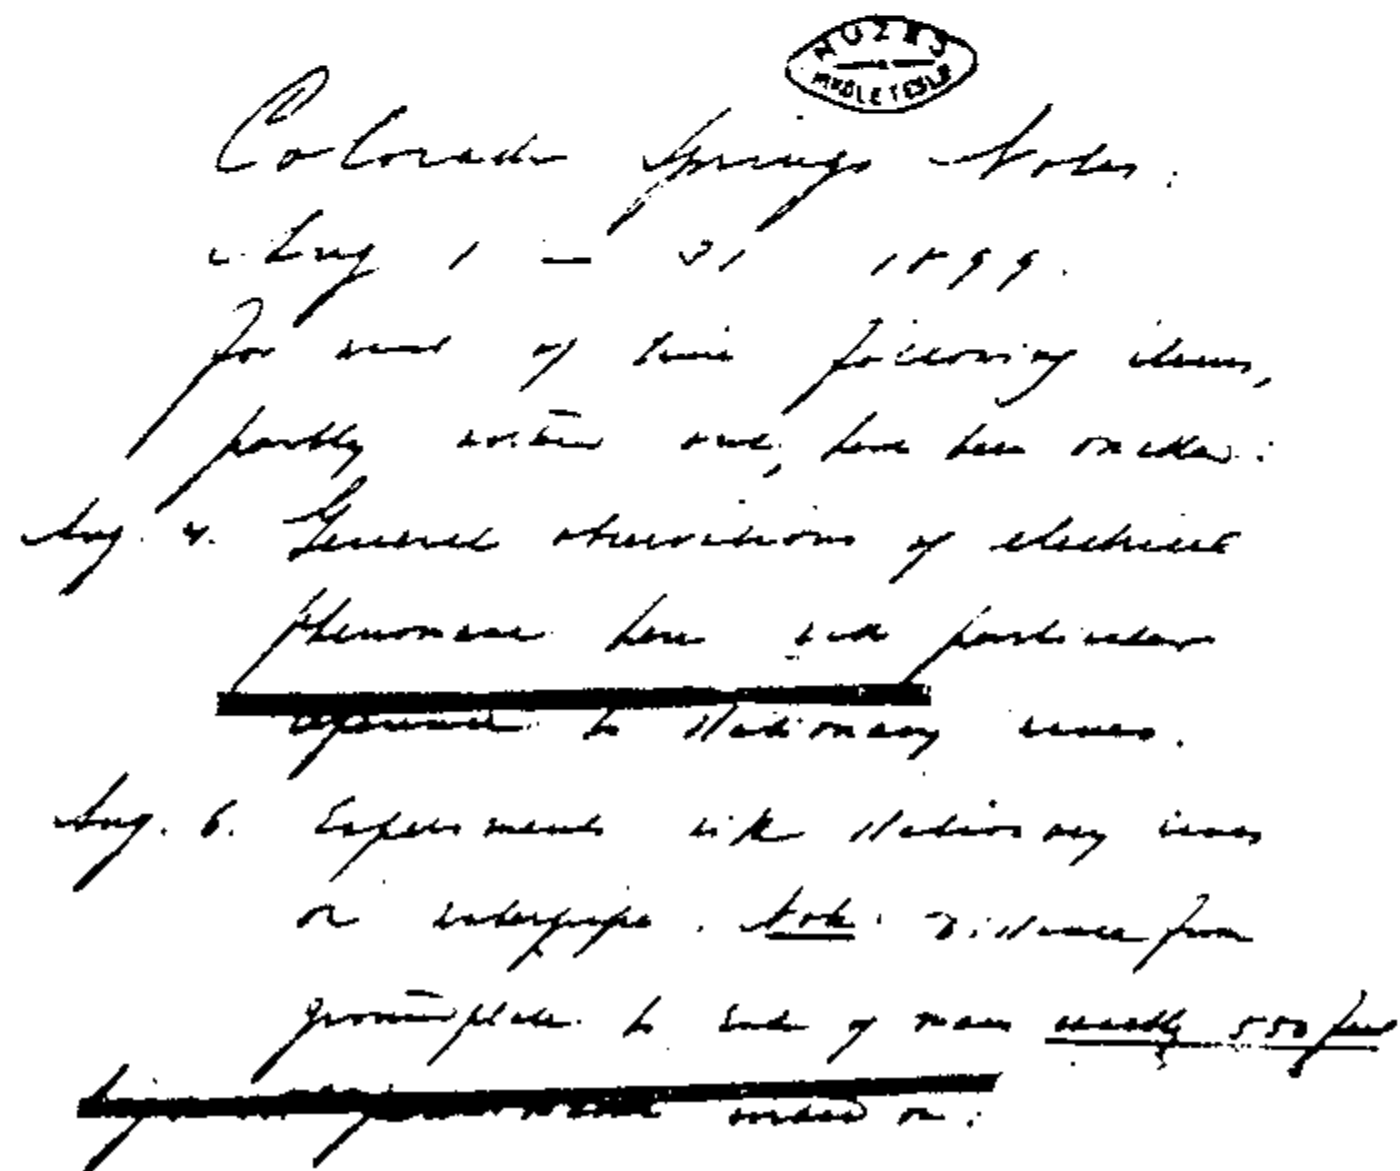 MUZEJ
NIKOLE TESLE
Colorado Springs Notes.
Aug 1 – 31 1899.
For want of time following items,
partly written out, have been omitted:
Aug. 4. General observations of electrical
phenomena here with particular
reference to stationary waves.
Aug. 6. Experiments with stationary waves
on waterpipe. Note: Distance from
groundplate to end of main exactly 550 feet
worked on: